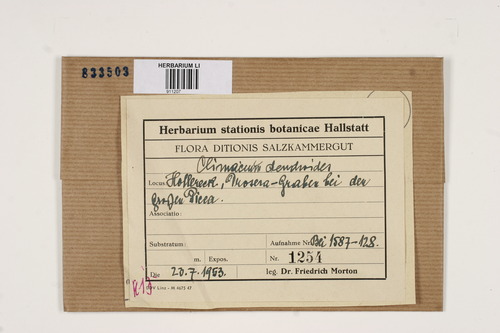 833503
HERBARIUM LI
911207
Herbarium stationis botanicae Hallstatt
FLORA DITIONIS SALZKAMMERGUT
Climacium dendroides
Locus Hollereck, Drosera-Graben bei der
großen Picea.
Associatio:
Substratum: Aufnahme Nr. 1587-128.
m. Expos. Nr. 1254
Die 20.7.1953. leg. Dr. Friedrich Morton
R13